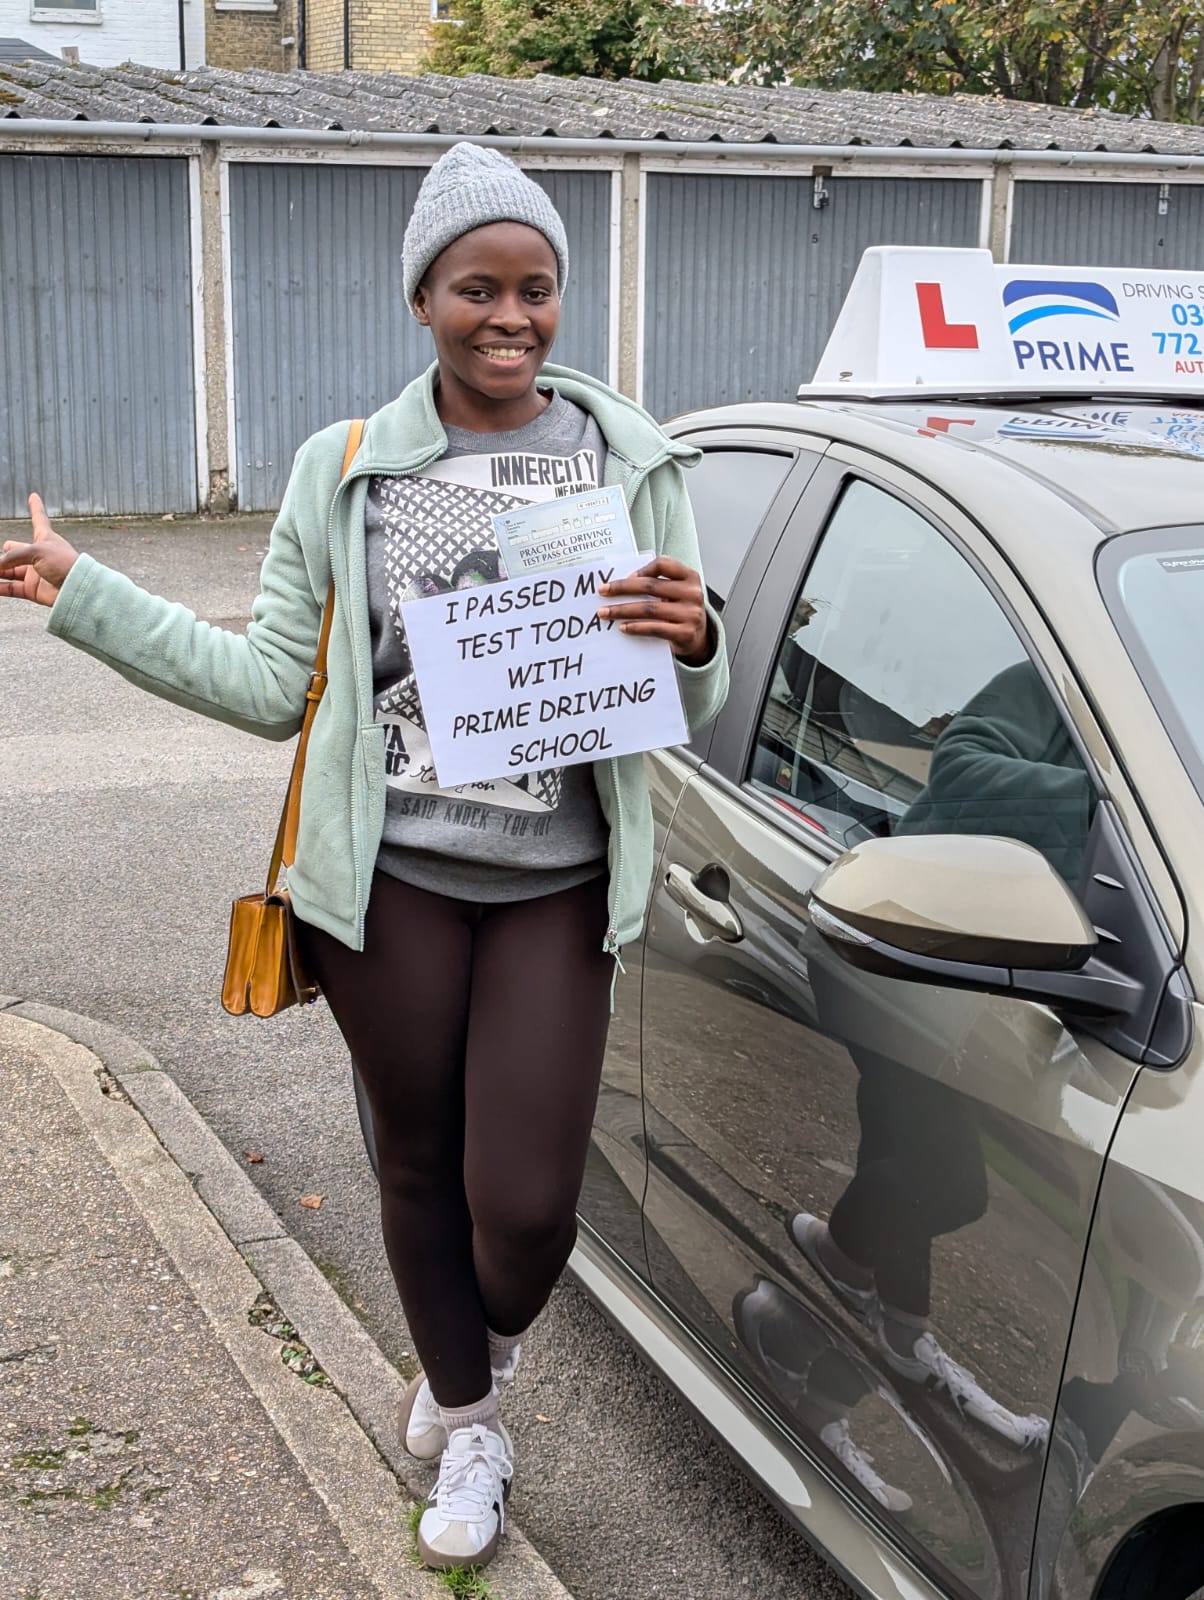 5
4
L
PRIME
DRIVING S
03
772
AUT
INNERCITY
INFAMOU
PRACTICAL DRIVING
TEST PASS CERTIFICATE
I PASSED MY
TEST TODAY
WITH
PRIME DRIVING
SCHOOL
SAID KNOCK YOU OUT